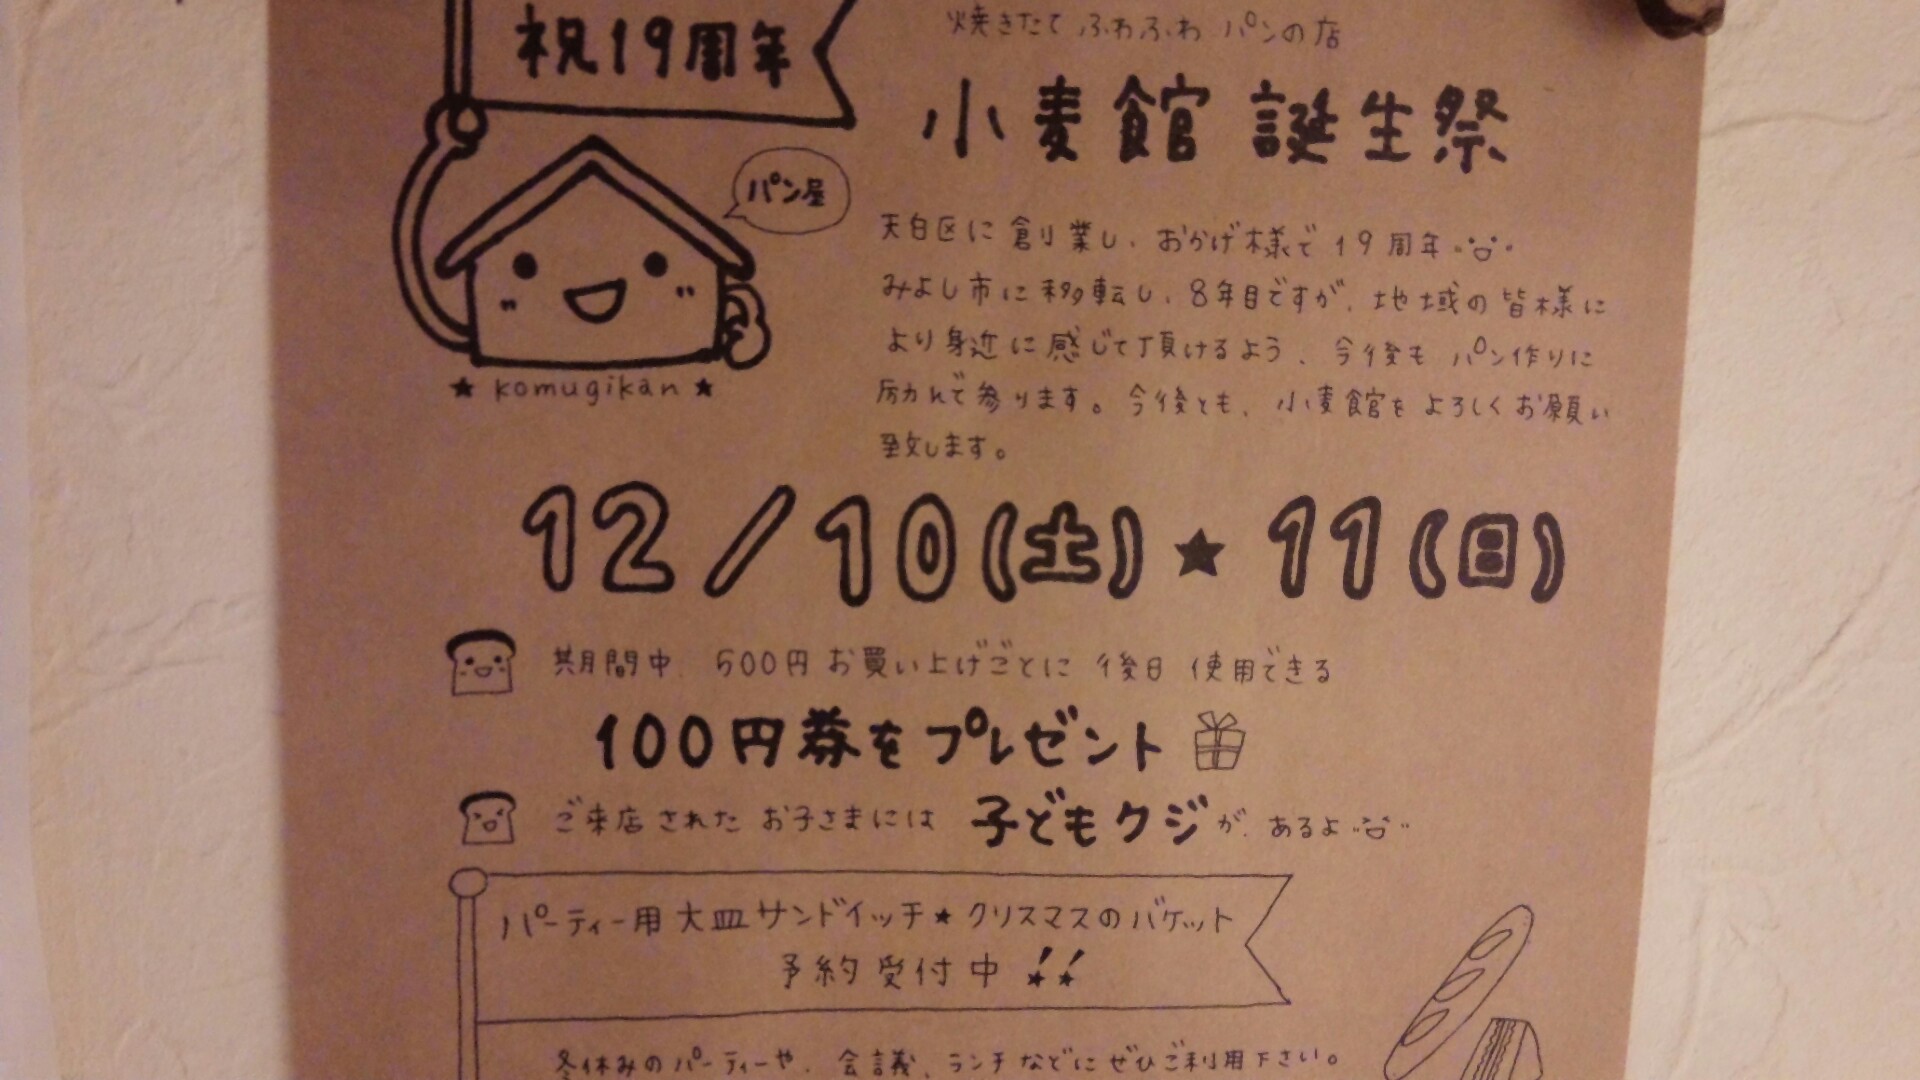 祝19周年
焼きたて ふわふわ パンの店
小麦館 誕生祭
パン屋
★ komugikan ★
天白区に創業し、おかげ様で19周年
みよし市に移転し、8年目ですが、地域の皆様に
より身近に感じて頂けるよう、今後も パン作りに
励んで参ります。今後とも、小麦館をよろしくお願い
致します。
12/10(土)★11(日)
期間中、500円お買い上げごとに 後日 使用できる
100円券をプレゼント
ご来店された お子さまには 子どもクジが、あるよ
パーティー用大皿サンドイッチ★クリスマスのバケット
予約受付中!!
冬休みのパーティーや、会議、ランチなどにぜひご利用下さい。